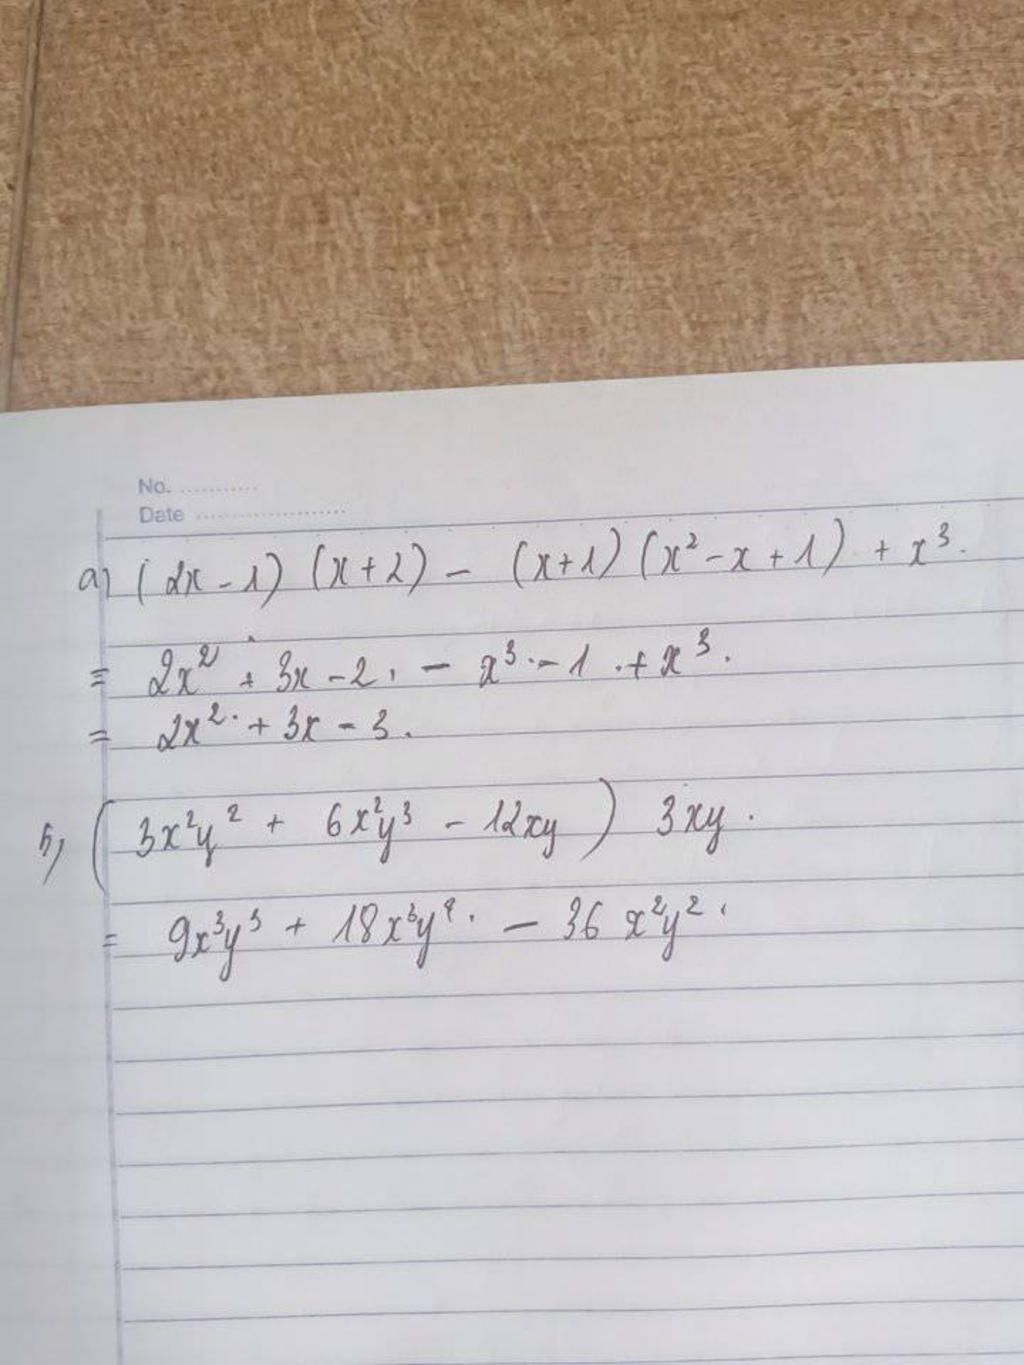 No. ...........
Date .....................
a) (2x - 1) (x + 2) - (x + 1) (x² - x + 1) + x³.
= 2x² + 3x - 2 - x³ - 1 + x³.
= 2x² + 3x - 3.
b) (3x²y² + 6x²y³ - 12xy) 3xy.
= 9x³y³ + 18x³y⁴ - 36x²y²